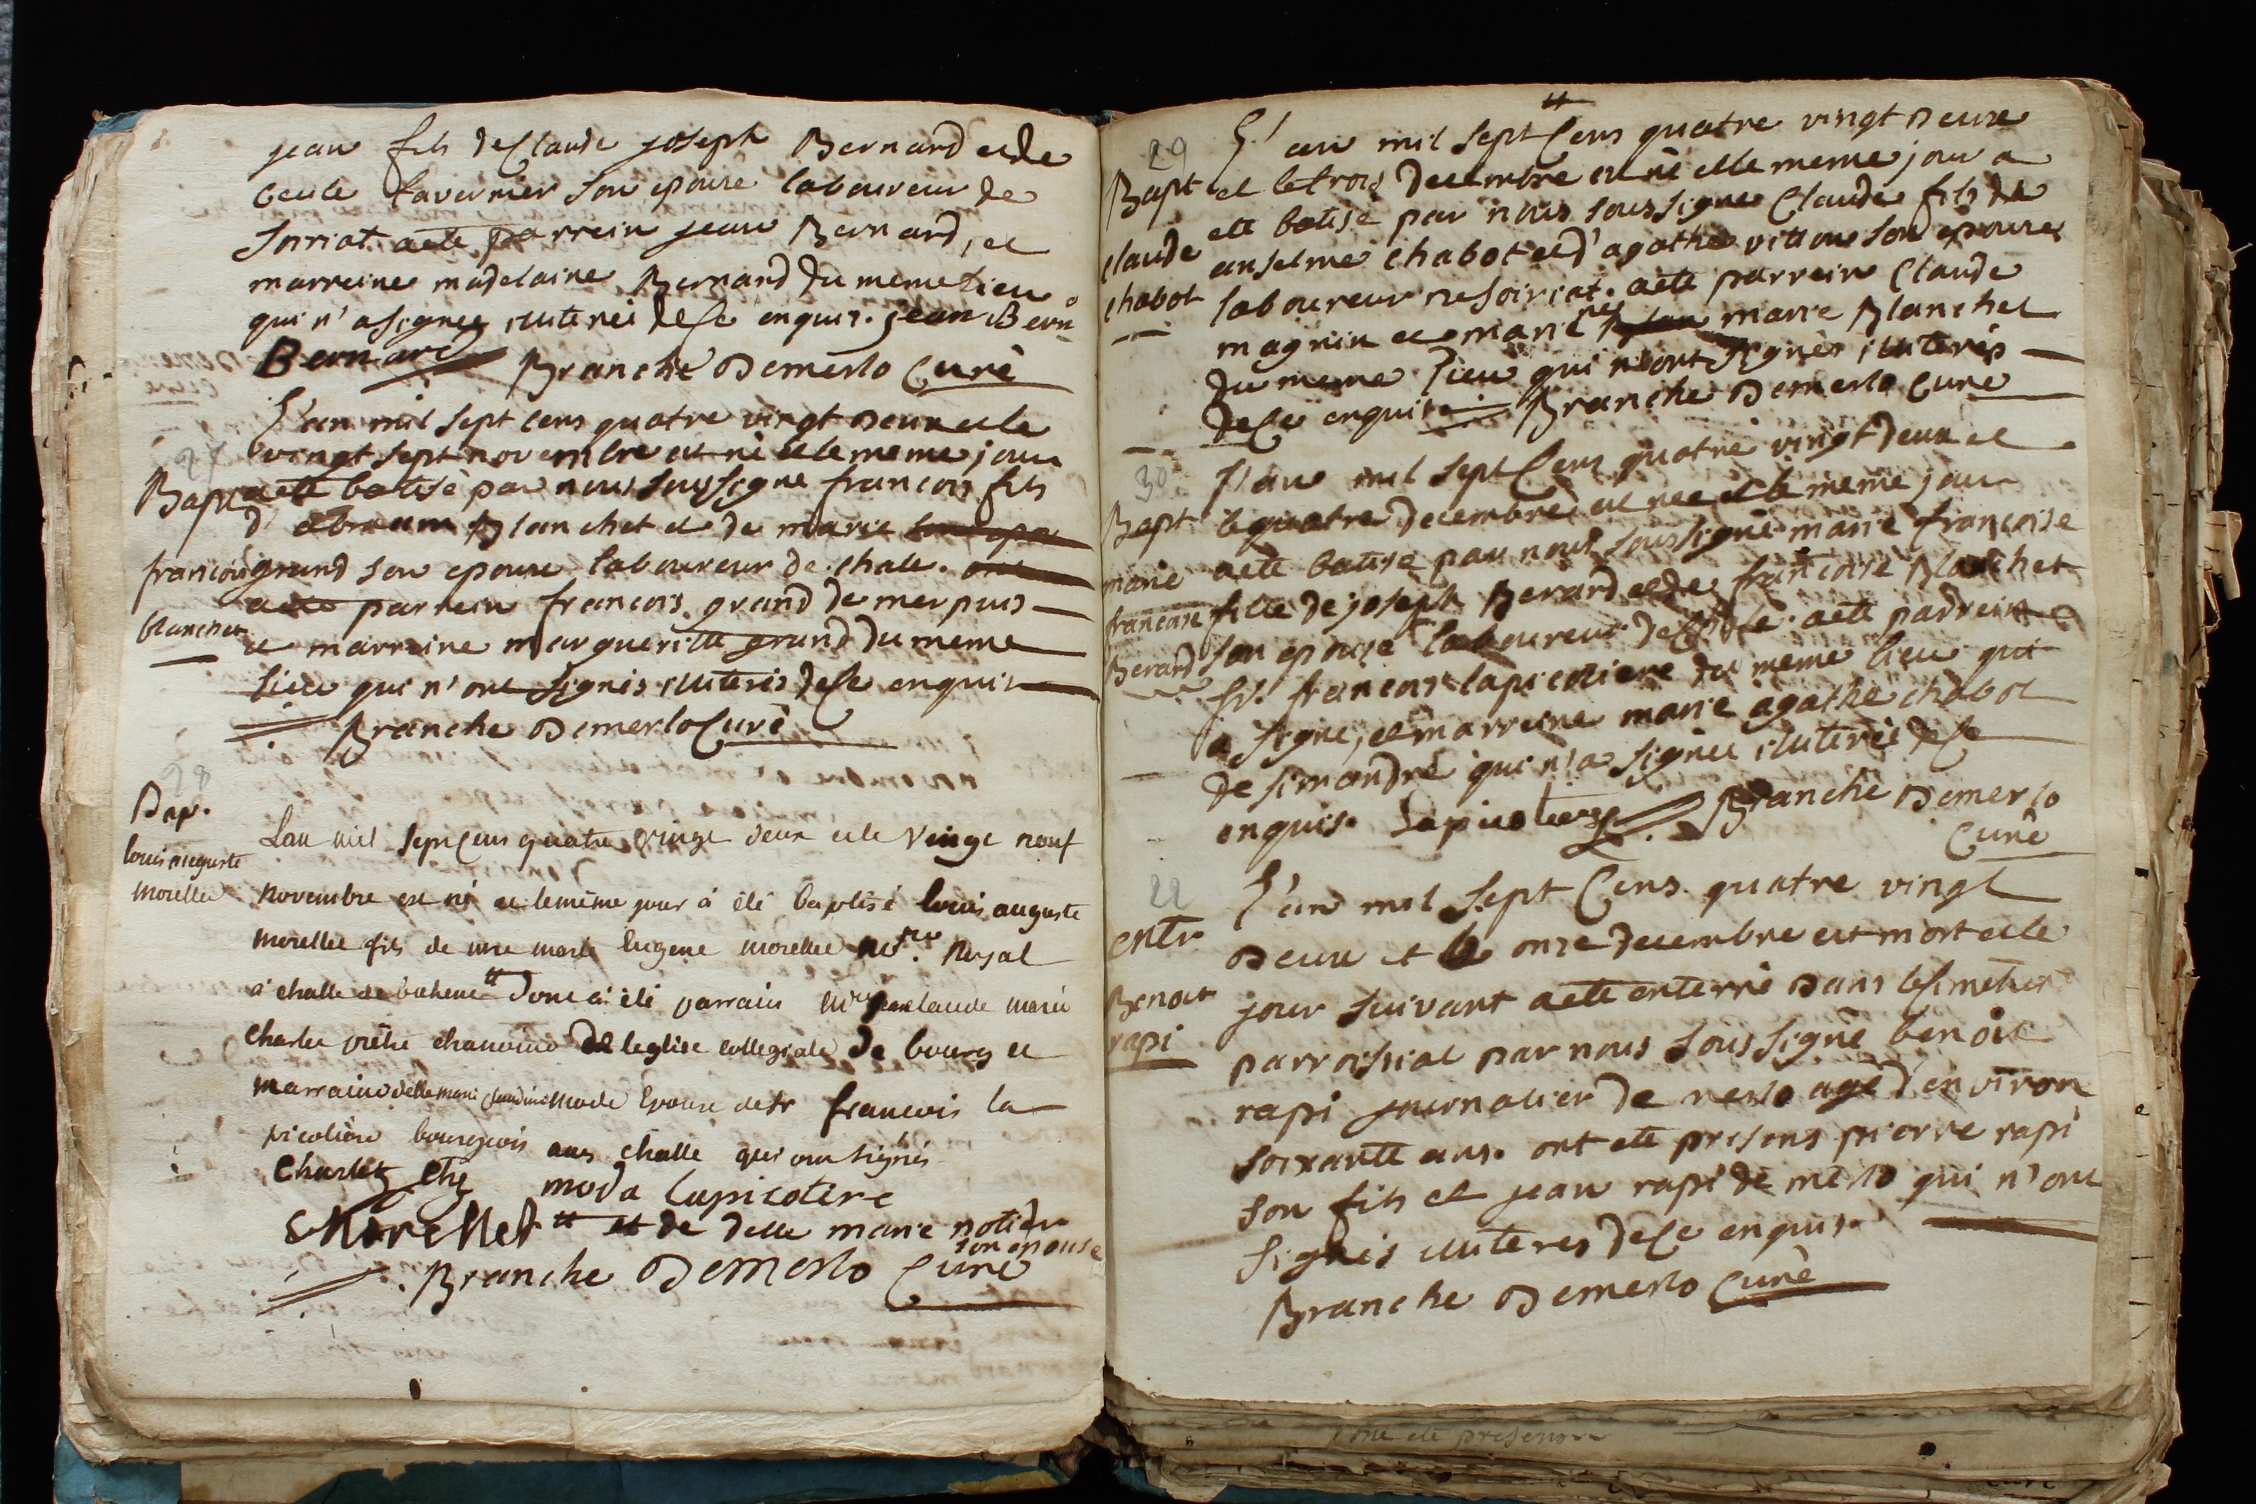 jean fils de Claude joseph Bernard et de
Cecile tavernier son epouse laboureur de
Soiriat. a ete parrein jean Bernard, et
marreine madelaine Bernard du meme lieu
qui n'a signee illiteree de ce enquis. jean Bern
Bernard Branche De merlo Curé
L'an mil sept cens quatre vingt Deux et le
27
vingt sept novembre est né et le meme jour
Bapt a ete batisé par nous soussigne francois fils
d'abraam Blanchet et de marie
francois grand son epouse laboureur de chale.
a ete parrein francois grand de merpuis
blanchet et marreine margueritte grand du meme
lieu qui n'ont signés illiterés de ce enquis
Branche De merlo Curé
28
Bap.
louis auguste
Morellet
Lan mil sept cens quatre vingt deux et le vingt neuf
novembre est né et le même jour à été baptisé louis auguste
morellet fils de marie Eugene morellet Nre Royal
à challe de boheme tt dont à été parrain Mre jean claude marie
Charlet prêtre chanoine de leglise collegiale de bourg et
marraine delle marie claudine moda Epouse de sr francois la
picotiere bourgeois aud challe qui ont signés
Charlet Chne moda lapicotire
Morellet tt et de delle marie notion
son epouse
Branche De merlo Curé
29
L'an mil sept Cens quatre vingt Deux
tt
Bapt et le trois Decembre est né et le meme jour a
ete batise par nous soussigne Claude fils de
claude anselme chabot et d'agathe vitton son epouse
chabot laboureur de soiriat. a ete parrein Claude
magnin et marie marie Blanchet
du meme lieu qui n'ont signés illiterés
de ce enquis. Branche De merlo Curé
30
L'an mil sept Cens quatre vingt Deux et
Bapt le quatre decembre est nee et le meme jour
marie a ete batise par nous soussigné marie françoise
francoise fille de joseph Berard et de françoise Blanchet
Berard son epouse laboureur de chale. a ete parrein
Sr. francois lapicotiere du meme lieu qui
a signe, et marreine marie agathe chabot
de simandre qui n'a signee illiteree de ce
enquis. Lapicotiere Branche De merlo
Curé
22
L'an mil sept Cens quatre vingt
entr Deux et le onze decembre est mort et le
Benoit jour suivant a ete enterré dans le simetier
rapi parroissial par nous soussigné benoit
rapi journalier de merlo agé d'environ
soixante ans. ont ete presens pierre rapi
son fils et jean rapi de merlo qui n'ont
signés illiteres de ce enquis.
Branche De merlo Curé
ont ete presens